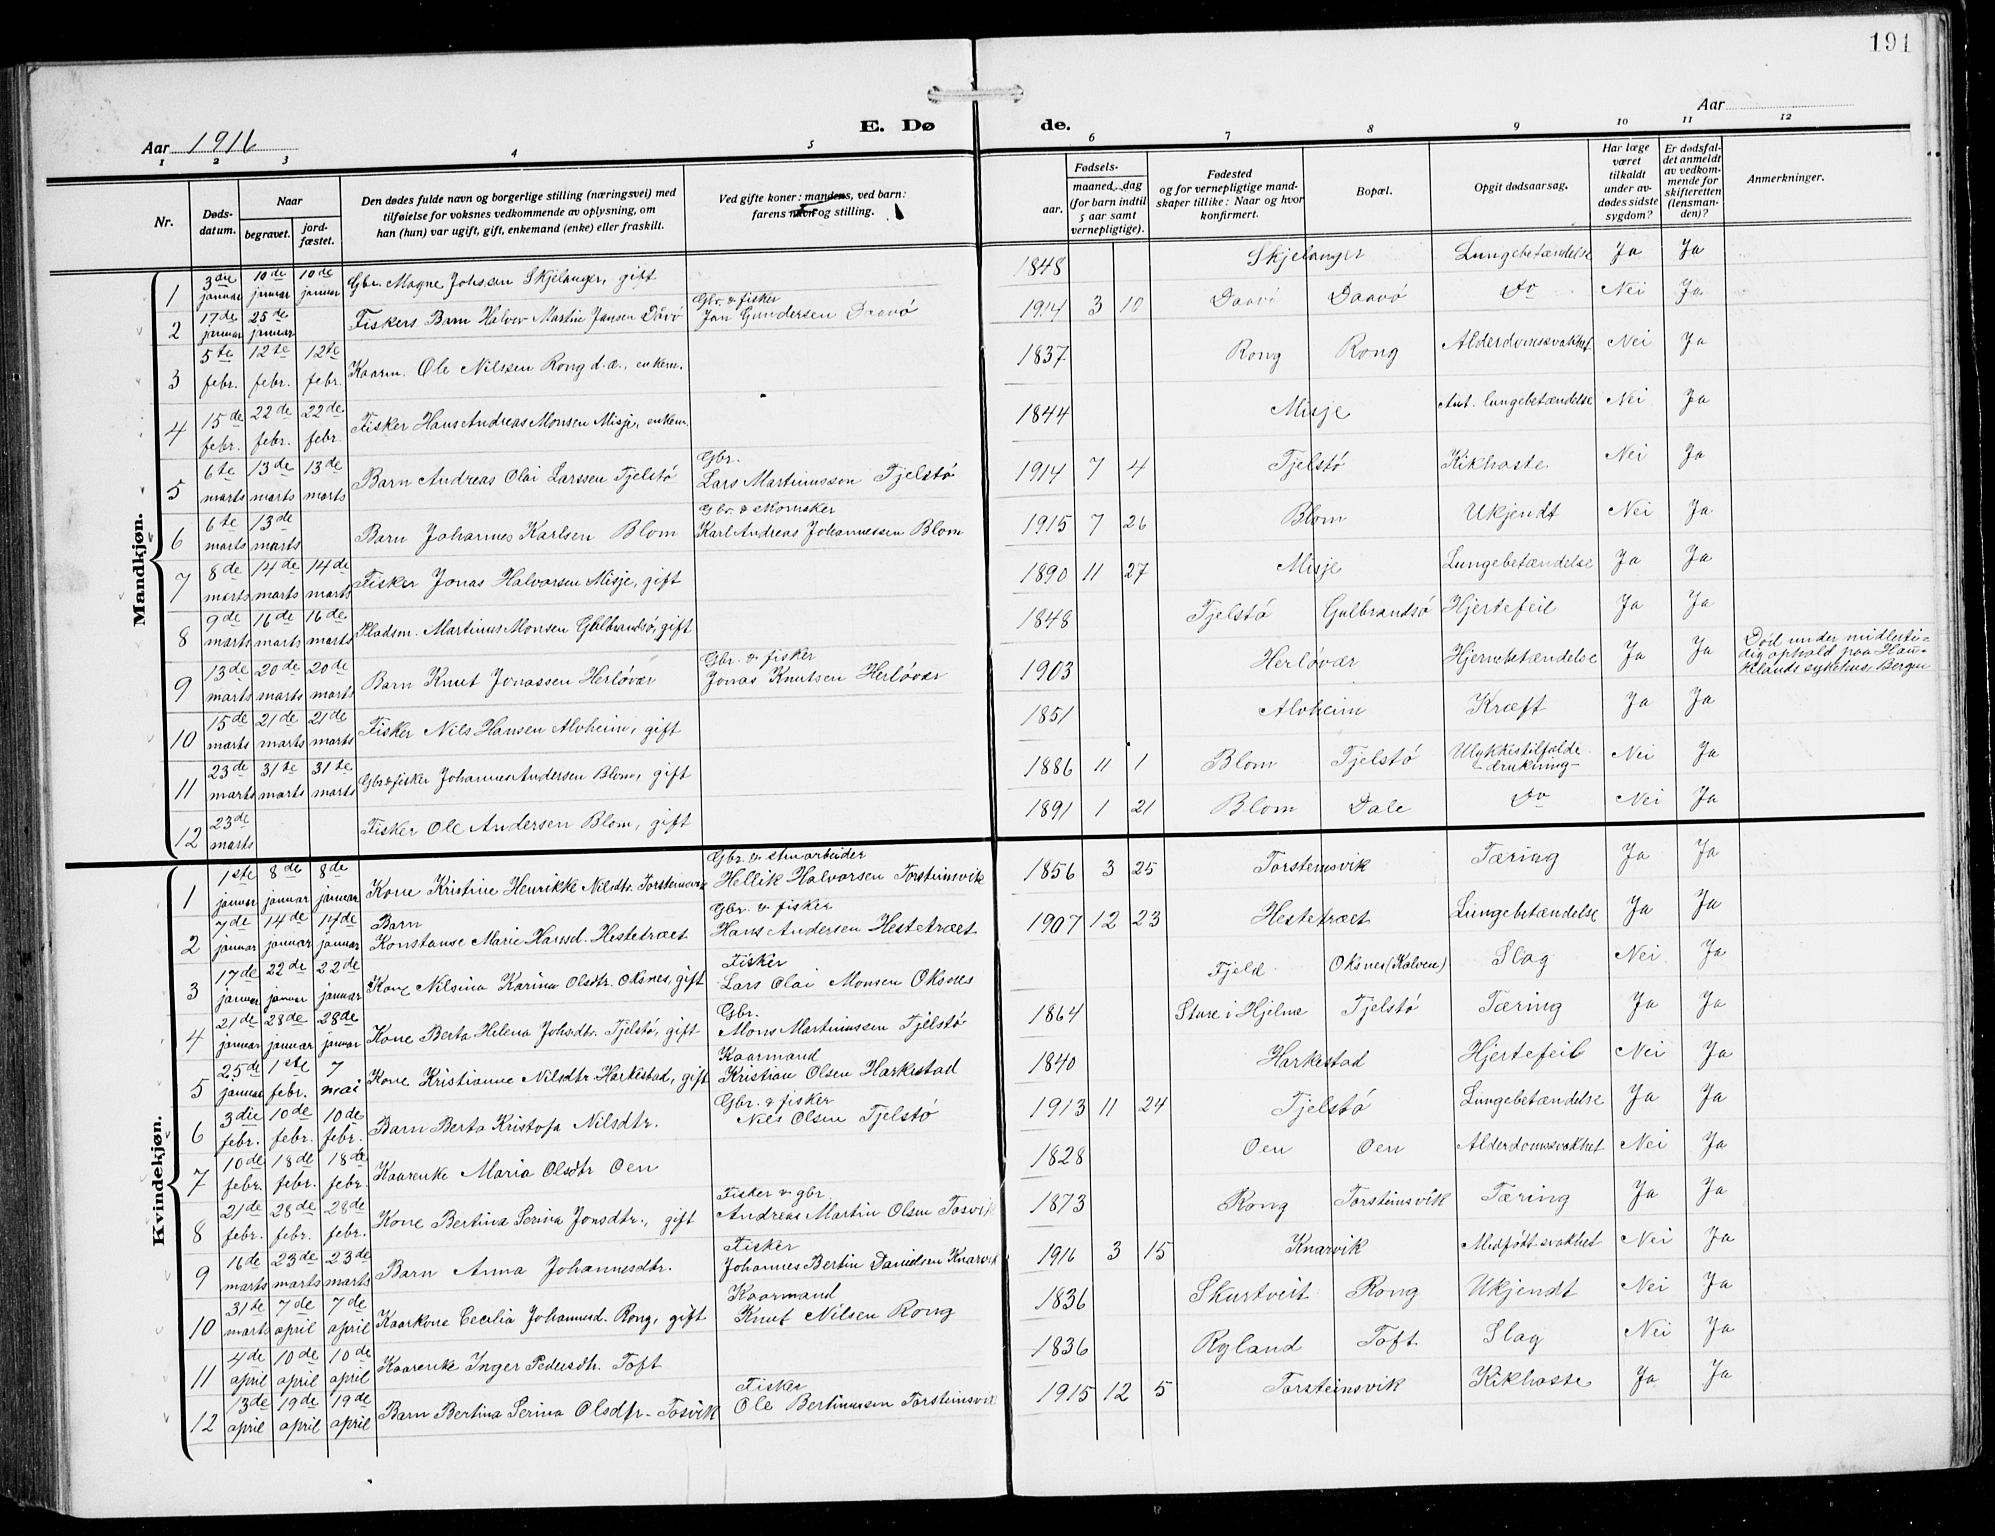 191
Aar 1916
E. Dø de.
Aar
1 2 3 4 5 6 7 8 9 10 11 12
Nr.
Døds-
datum.
Naar
begravet.
jord-
fæstet.
Den dødes fulde navn og borgerlige stilling (næringsvei) med
tilføielse for voksnes vedkommende av oplysning, om
han (hun) var ugift, gift, enkemand (enke) eller fraskilt.
Ved gifte koner: mandens, ved barn:
farens navn og stilling.
Fødsels-
aar.
maaned, dag
(for barn indtil
5 aar samt
vernepligtige).
Fødested
og for vernepligtige mand-
skaper tillike: Naar og hvor
konfirmert.
Bopæl.
Opgit dødsaarsag.
Har læge
været
tilkaldt
under av-
dødes sidste
sygdom?
Er dødsfal-
det anmeldt
av vedkom-
mende for
skifteretten
(lensman-
den)?
Anmerkninger.
Mandkjøn.
1 3die januar 10de januar 10de januar Gbr. Magne Johssen Skjelanger, gift 1848 Skjelanger Lungebetændelse Ja Ja
2 17de januar 25de januar Fiskers Barn Halvor Martin Jansen Dåvø Gbr. & fisker Jan Gundersen Daavø 1914 3 10 Daavø Daavø Do Nei Ja
3 5te febr. 12te febr. 12te febr. Kaarm. Ole Nilssen Rong d.æ., enkem. 1837 Rong Rong Alderdomssvakhet Nei Ja
4 15de febr. 22de febr. 22de febr. Fisker Hans Andreas Monsen Misje, enkem. 1844 Misje Ant. lungebetændelse Nei Ja
5 6te marts 13de marts 13de marts Barn Andreas Olai Larssen Tjelstø Gbr. Lars Martinusson Tjelstø 1914 7 4 Tjelstø Kikhoste Nei Ja
6 6te marts 13de marts Barn Johannes Karlsen Blom Gbr. & skomaker Karl Andreas Johannessen Blom 1915 7 26 Blom Ukjendt Nei Ja
7 8de marts 14de marts 14de marts Fisker Jonas Halvorsen Misje, gift 1890 11 27 Misje Lungebetændelse Ja Ja
8 9de marts 16de marts 16de marts Pladsm. Martinus Monsen Gulbrandsø, gift 1848 Tjelstø Gulbrandsø Hjertefeil Ja Ja
9 13de marts 20de marts 20de marts Barn Knut Jonassen Herløvær Gbr. & fisker Jonas Knutsen Herløvær 1903 Herløvær Hjernebetændelse Ja Ja Død under midlerti-
dig ophold paa Hau-
kelands sykehus Bergen
10 15de marts 21de marts 21de marts Fisker Nils Hansen Alvheim, gift 1851 Alvheim Kræft Ja Ja
11 23de marts 31te marts 31te marts Gbr & fisker Johannes Andersen Blom, gift 1886 11 1 Blom Tjelstø Ulykkestilfælde
- drukning - Nei Ja
12 23de marts Fisker Ole Andersen Blom, gift 1891 1 21 Blom Dale Do Nei Ja
Kvindekjøn.
1 1ste januar 8de januar 8de januar Kone Kristine Henrikke Nilsdtr. Torsteinsvik Gbr. & stuarbeider Hellik Halvorsen Torsteinsvik 1856 3 25 Torsteinsvik Tæring Ja Ja
2 7de januar 14de januar 14de januar Barn Konstanse Marie Hansd. Hestetræet Gbr. & fisker Hans Andersen Hestetræet 1907 12 23 Hestetræet Lungebetændelse Ja Ja
3 17de januar 22de januar 22de januar Kone Nilsina Karina Olsdtr. Oksnes, gift Fisker Lars Olai Monsen Oksnes Fjeld Oksnes (Kalven) Slag Nei Ja
4 21de januar 28de januar 28de januar Kone Berta Helena Johsdtr. Tjelstø, gift Gbr. Mons Martinussen Tjelstø 1864 Sture i Hjelme Tjelstø Tæring Ja Ja
5 25de januar 1ste febr. 7 mai Kone Kristianne Nilsdtr Harkestad, gift Kaarmand Kristian Olsen Harkestad 1840 Harkestad Hjertefeil Nei Ja
6 3die febr. 10de febr. 10de febr. Barn Berta Kristofa Nilsdtr. Gbr. & fisker Nils Olsen Tjelstø 1913 11 24 Tjelstø Lungebetændelse Ja Ja
7 10de febr. 18de febr. 18de febr. Kaarenke Maria Olsdtr Oen 1828 Oen Oen Alderdomssvakhet Nei Ja
8 21de febr. 28de febr. 28de febr. Kone Bertina Serina Jonsdtr., gift Fisker & gbr. Andreas Martin Olsen Tosvik 1873 Rong Torsteinsvik Tæring Ja Ja
9 16de marts 23de marts 23de marts Barn Anna Johannesdtr. Fisker Johannes Bertin Danielsen Knarvik 1916 3 15 Knarvik Medfødt svakhet Nei Ja
10 31te marts 7de april 7de april Kaarkone Cecilia Johannesd. Rong, gift Kaarmand Knut Nilsen Rong 1836 Skurtveit Rong Ukjendt Nei Ja
11 4de april 10de april 10de april Kaarenke Inger Pedersdtr. Toft 1836 Ryland Toft Slag Nei Ja
12 13de april 19de april 19de april Barn Bertina Serina Olsdtr. Tosvik Fisker Ole Bertinussen Torsteinsvik 1915 12 5 Torsteinsvik Kikhoste Ja Ja